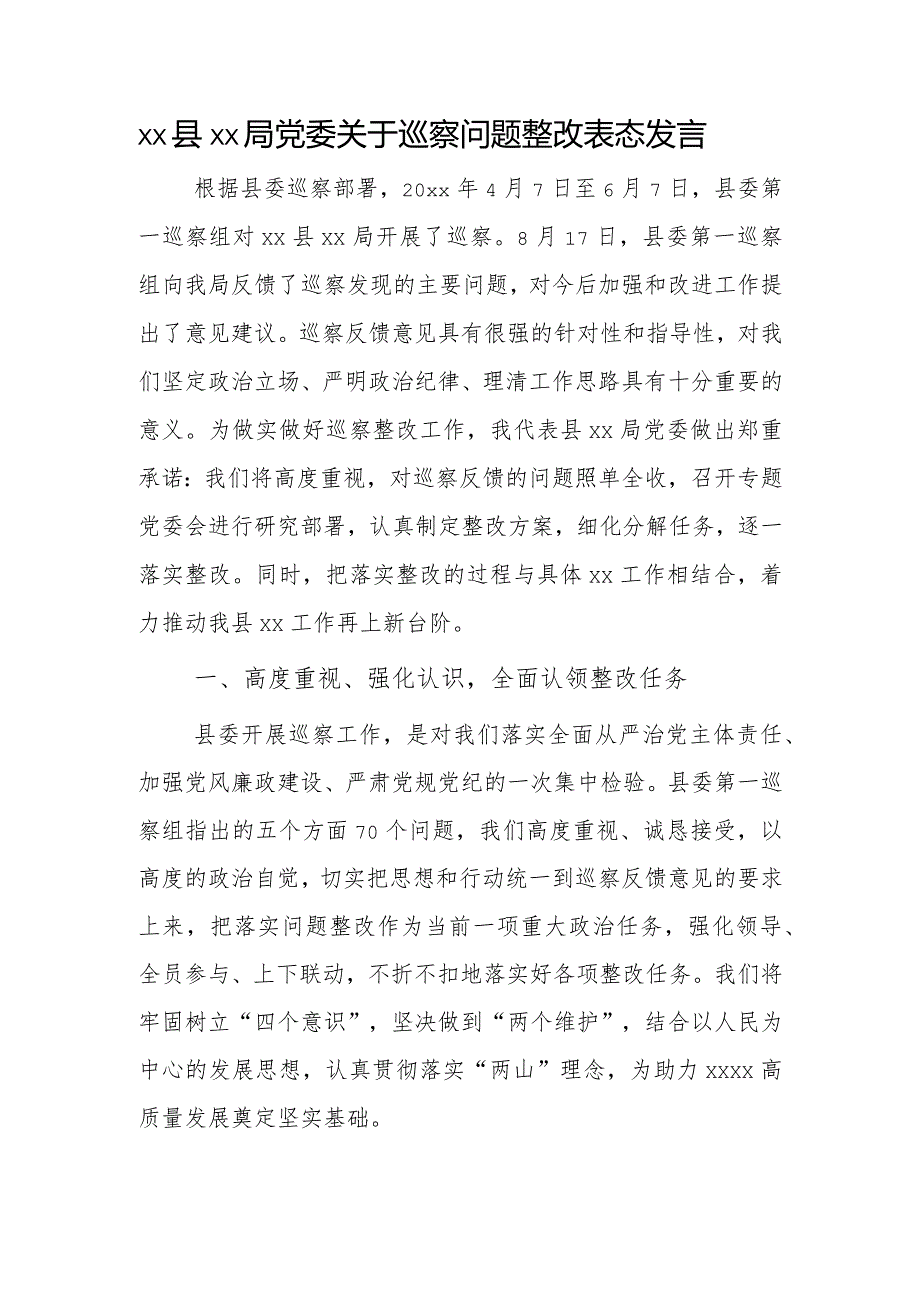 xx县xx局党委关于巡察问题整改表态发言
根据县委巡察部署，20xx年4月7日至6月7日，县委第
一巡察组对xx县xx局开展了巡察。8月17日，县委第一巡察
组向我局反馈了巡察发现的主要问题，对今后加强和改进工作提
出了意见建议。巡察反馈意见具有很强的针对性和指导性，对我
们坚定政治立场、严明政治纪律、理清工作思路具有十分重要的
意义。为做实做好巡察整改工作，我代表县xx局党委做出郑重
承诺：我们将高度重视，对巡察反馈的问题照单全收，召开专题
党委会进行研究部署，认真制定整改方案，细化分解任务，逐一
落实整改。同时，把落实整改的过程与具体xx工作相结合，着
力推动我县xx工作再上新台阶。
一、高度重视、强化认识，全面认领整改任务
县委开展巡察工作，是对我们落实全面从严治党主体责任、
加强党风廉政建设、严肃党规党纪的一次集中检验。县委第一巡
察组指出的五个方面70个问题，我们高度重视、诚恳接受，以
高度的政治自觉，切实把思想和行动统一到巡察反馈意见的要求
上来，把落实问题整改作为当前一项重大政治任务，强化领导、
全员参与、上下联动，不折不扣地落实好各项整改任务。我们将
牢固树立“四个意识”，坚决做到“两个维护”，结合以人民为
中心的发展思想，认真贯彻落实“两山”理念，为助力xxxx高
质量发展奠定坚实基础。